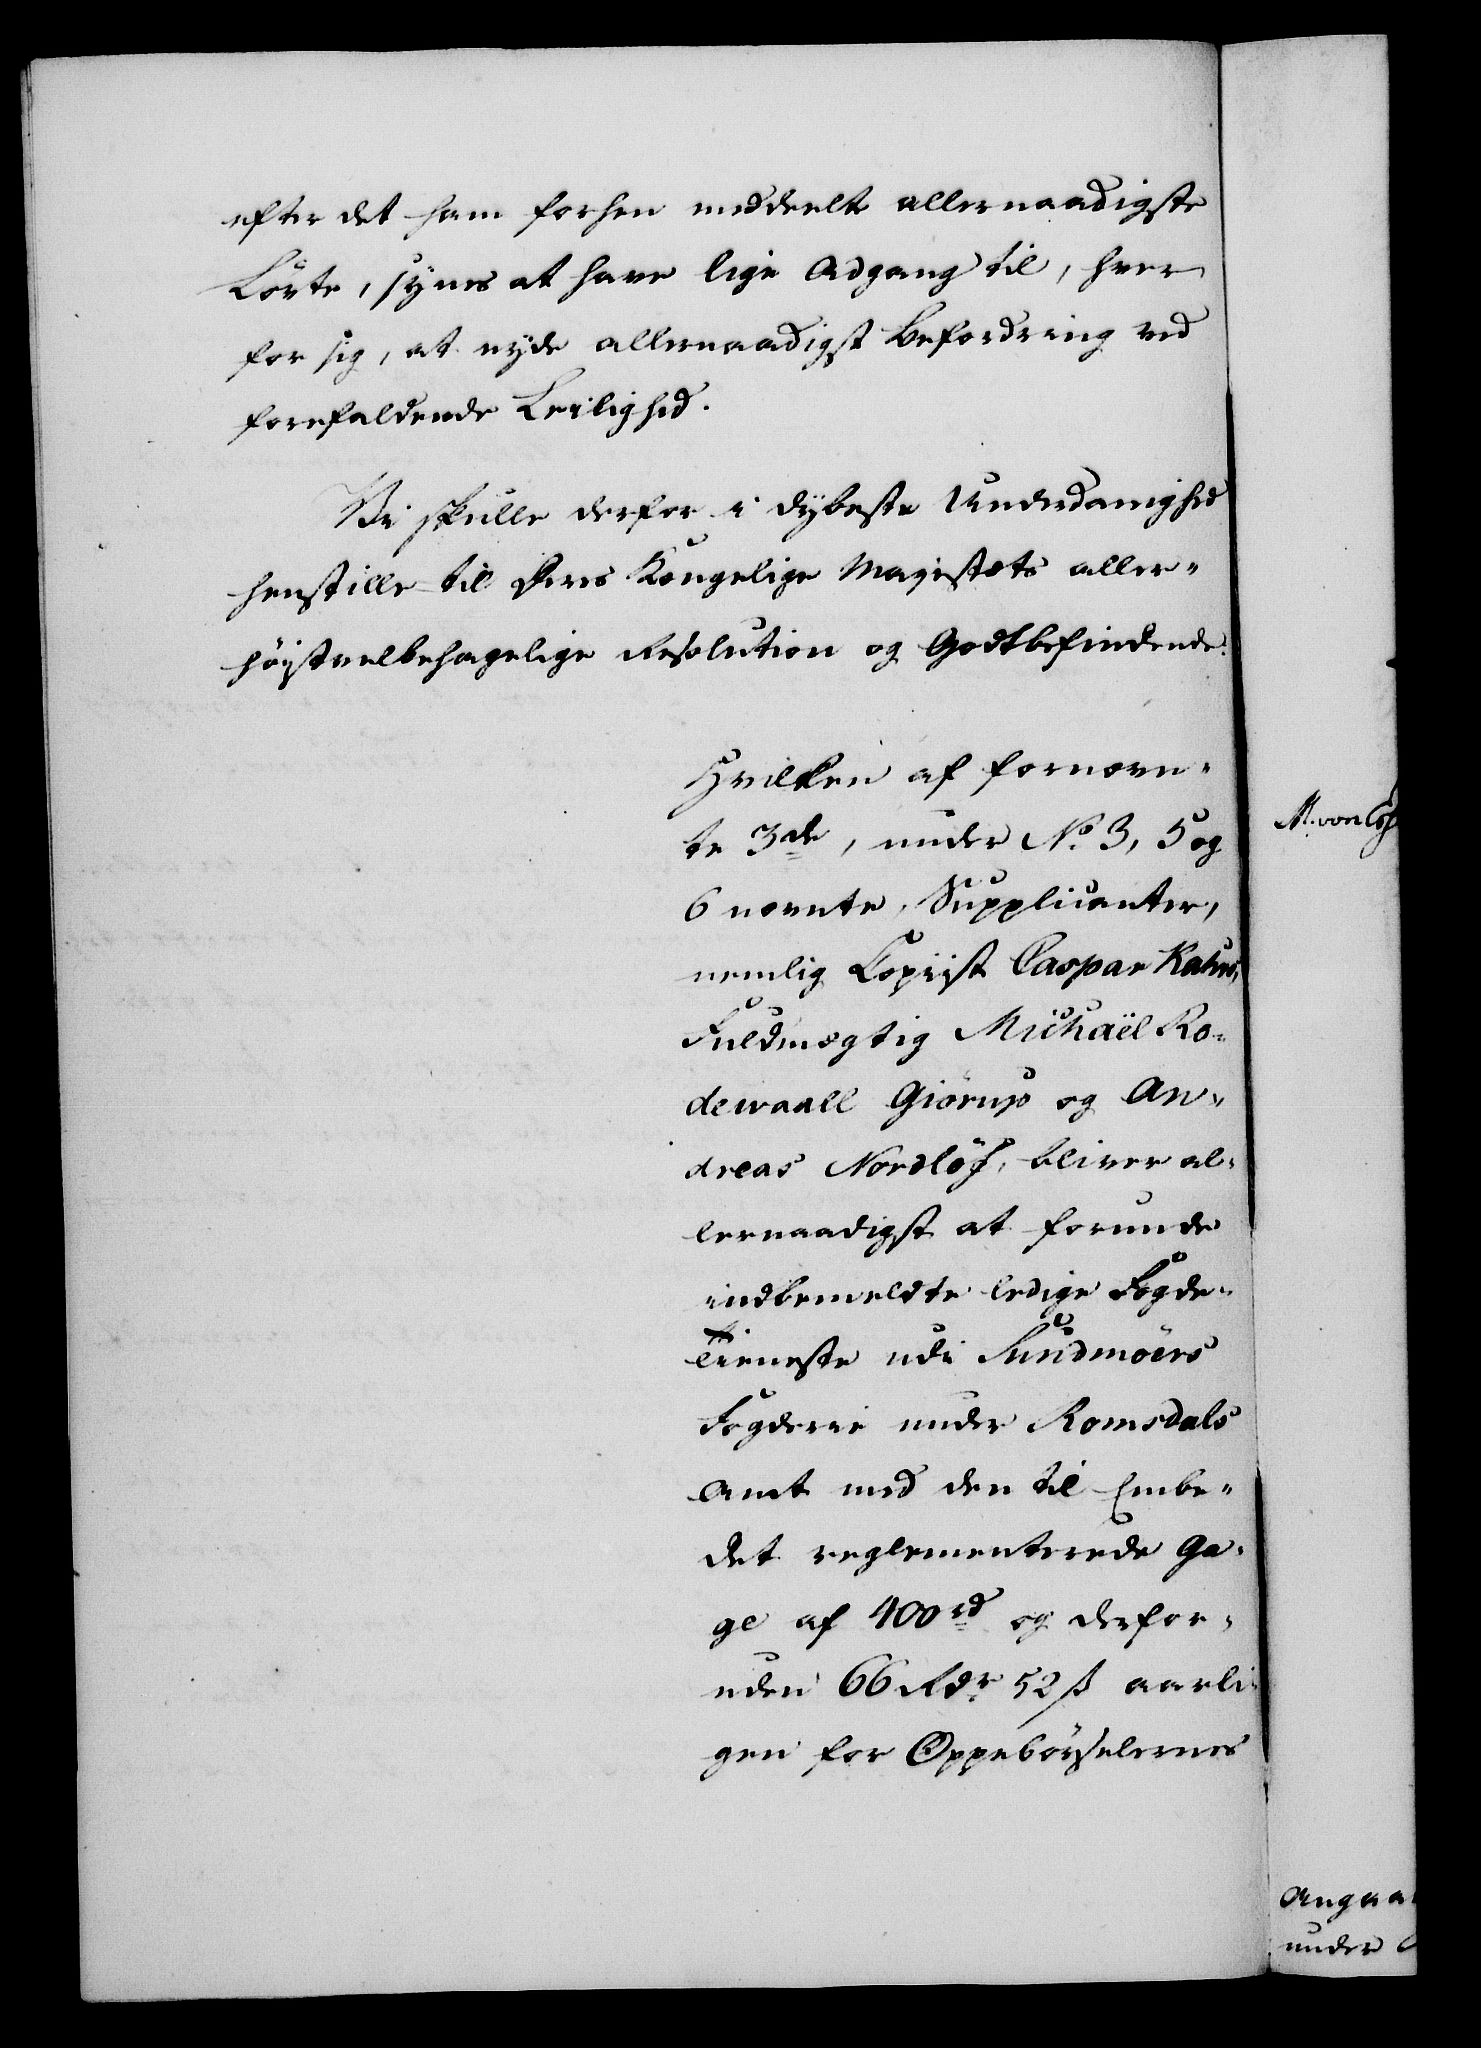 efter det ham forhen meddeelte allernaadigste
Løvte, synes at have lige Adgang til, hver
for sig, at nyde allernaadigst Befordring ved
forefaldende Leilighed.
Vi skulle derfor i dybeste Underdanighed
henstille til Deres Kongelige Majestæts aller-
höystvelbehagelige Resolution og Godtbefindende:
Hvilken af fornævn-
te 3de, under No. 3, 5 og
6 nævnte, Supplicanter,
nemlig Copiist Caspar Kahrs,
Fuldmægtig Michaël Ro-
dewaall Giörup og An-
dreas Nordlöf, bliver al-
lernaadigst at forunde
indbemeldte ledige Fogde-
Tieneste udi Sundmöers
Fogderie under Romsdals
Amt med den til Embe-
det reglementerede Ga-
ge af 400 rd og derfor-
uden 66 Rdr 52 ß aarli-
gen for Oppebörselernes
M. von
Angaa
under